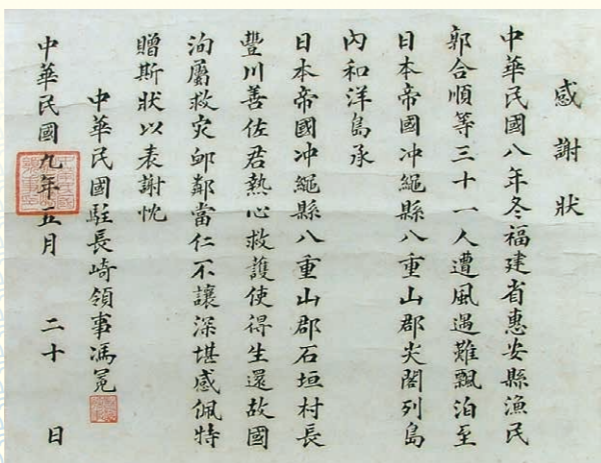 感謝狀
中華民國八年冬福建省惠安縣漁民
郭合順等三十一人遭風遇難飄泊至
日本帝國冲繩縣八重山郡尖閣列島
內和洋島承
日本帝國冲繩縣八重山郡石垣村長
豐川善佐君熱心救護使得生還故國
洵屬救灾邮鄰當仁不讓深堪感佩特
贈斯狀以表謝忱
中華民國駐長崎領事馮冕
中華民國九年五月 二十 日